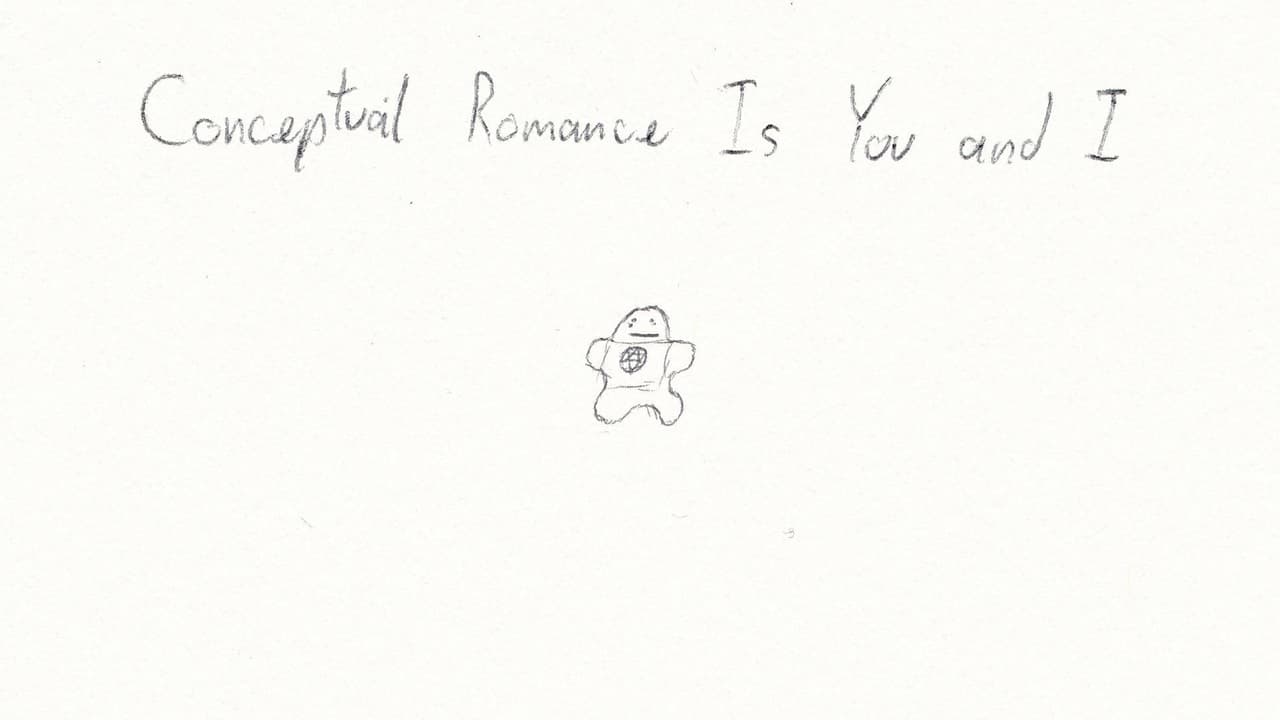 Conceptual Romance Is You and I